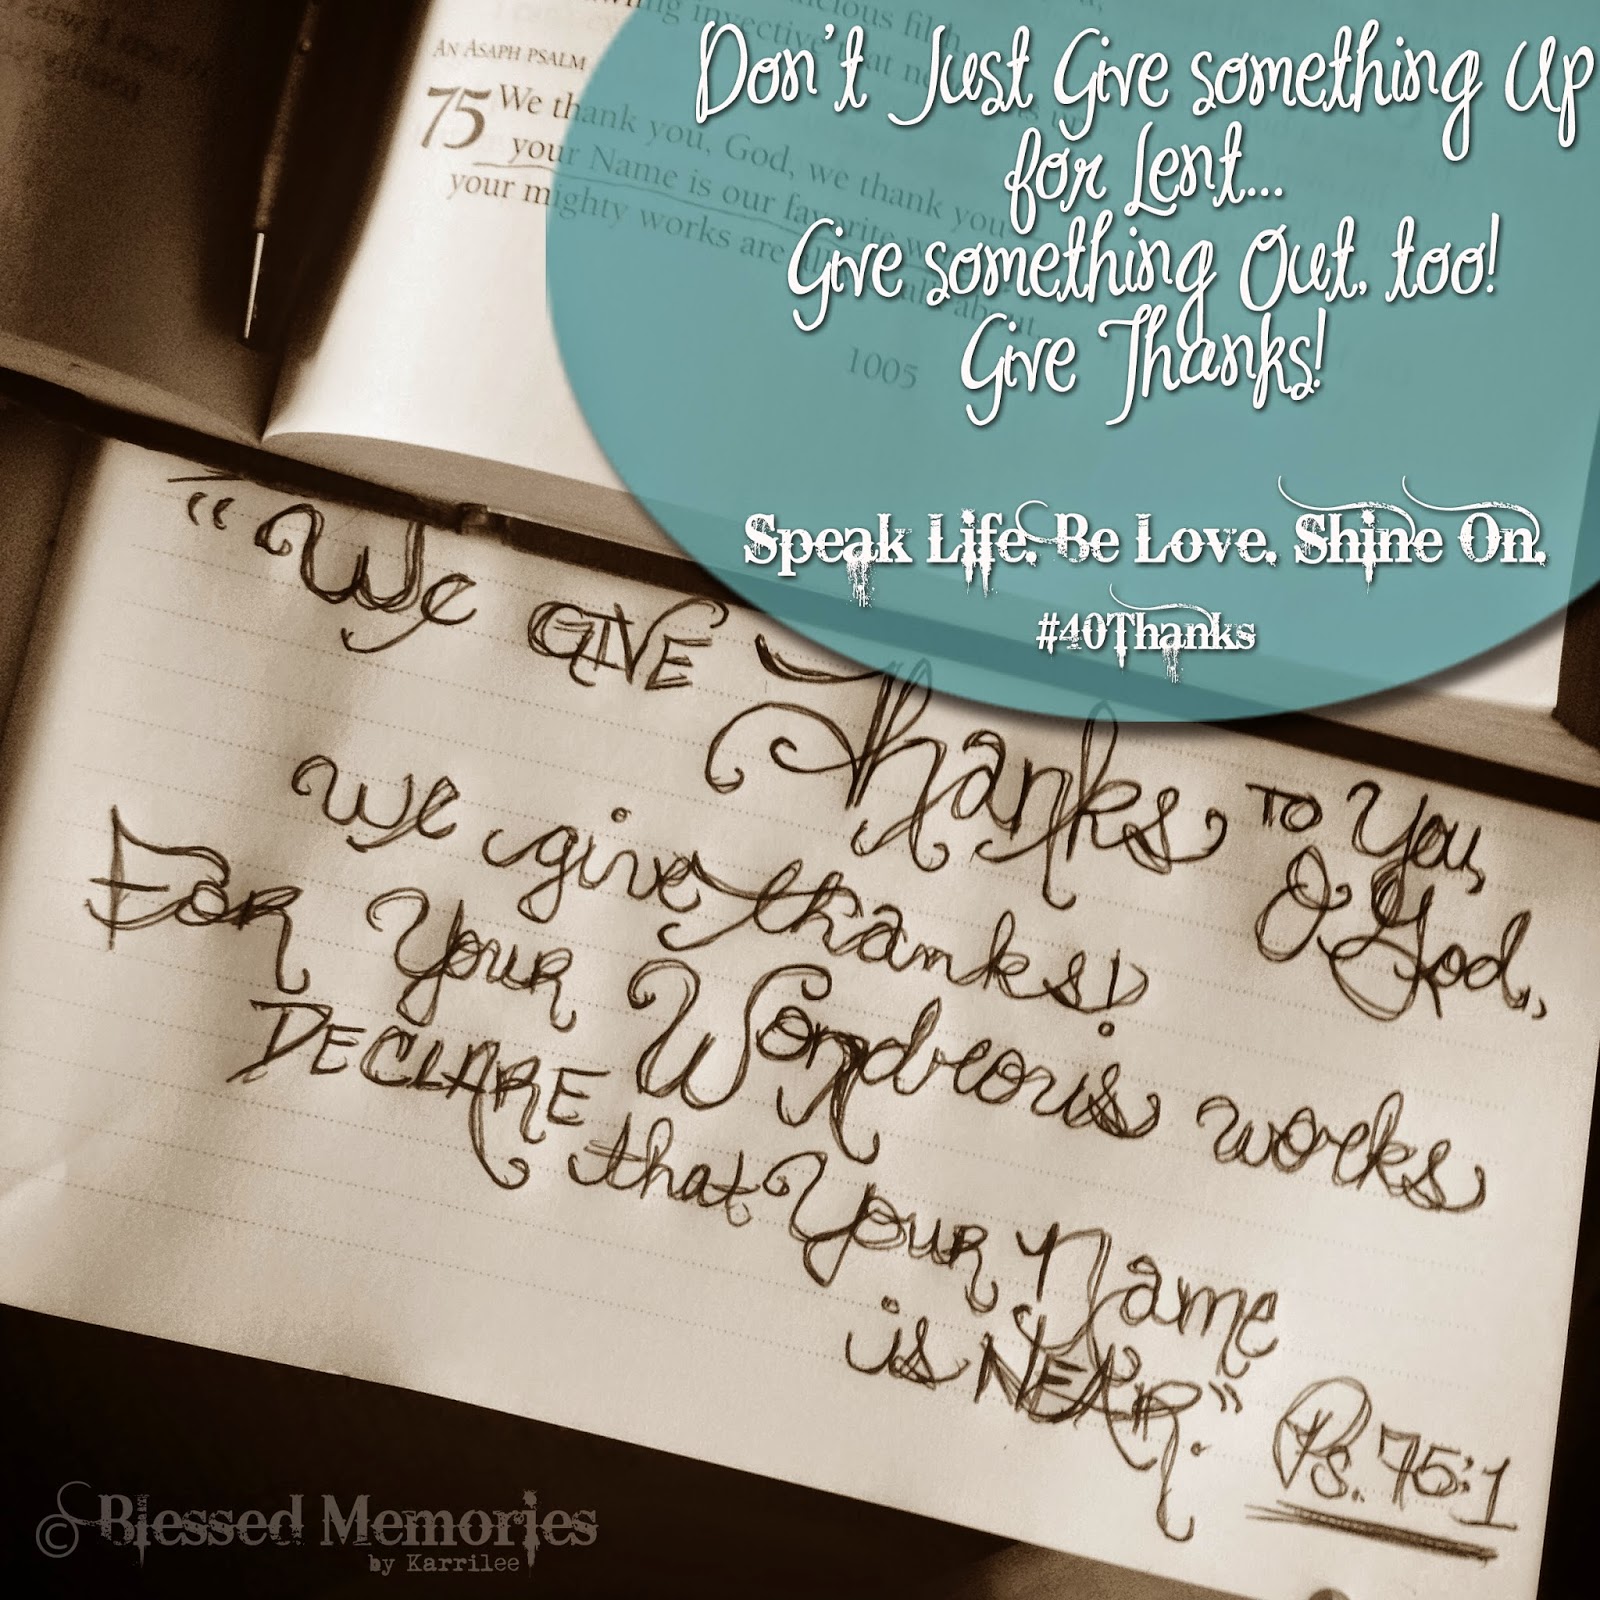 Don't Just Give something Up
for Lent...
Give something Out, too!
Give Thanks!
Speak Life. Be Love. Shine On.
#40Thanks
AN ASAPH PSALM
75 We thank you, God, we thank you
your Name is our favorite
your mighty works are about.
1005
"We GIVE Thanks TO You,
O God,,
we give thanks!
For Your Wondrous works
DECLARE that Your Name
is NEAR." Ps. 75:1
© Blessed Memories
by Karrilee